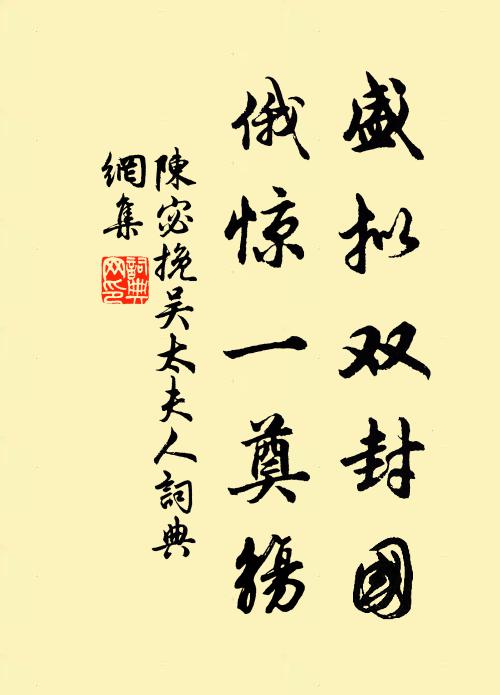 盛拟双封國
俄惊一奠觴
陳宓挽吴太夫人詞典
網集
詞典網印